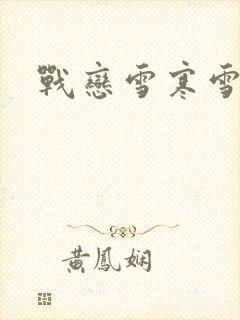 戰戀雪寒雪
黃鳳嫻